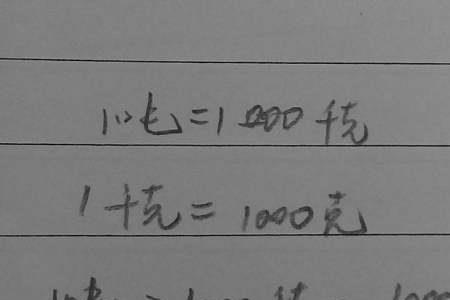 1吨=1000千克
1千克=1000克